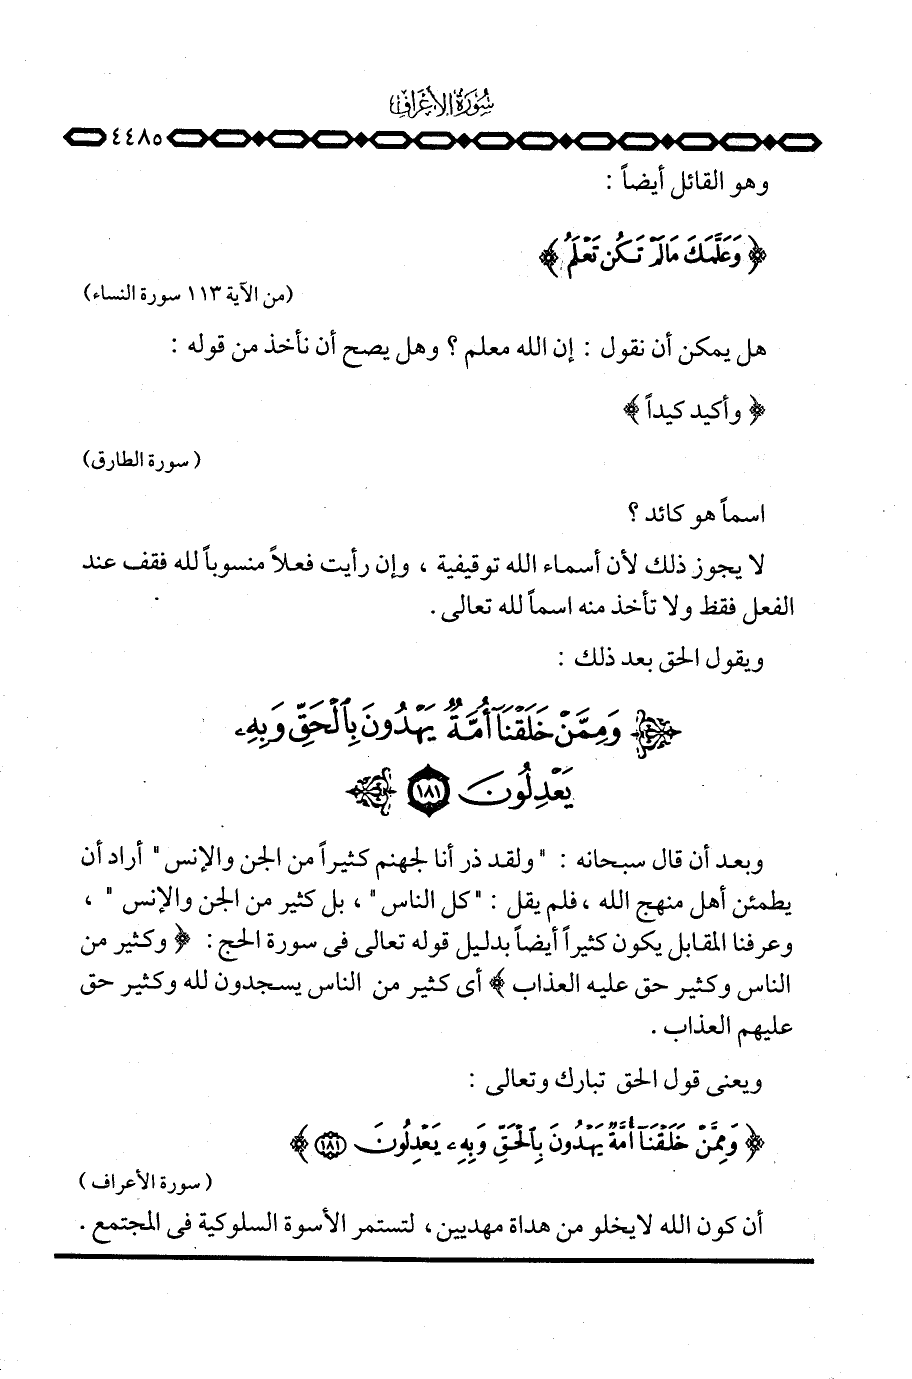 سُورَةُ الأَعْرَافِ
٤٤٨٥
وهو القائل أيضاً :
﴿ وَعَلَّمَكَ مَا لَمْ تَكُن تَعْلَمُ ﴾
(من الآية ١١٣ سورة النساء)
هل يمكن أن نقول : إن الله معلم ؟ وهل يصح أن نأخذ من قوله :
﴿ وأكيد كيداً ﴾
( سورة الطارق)
اسماً هو كائد ؟
لا يجوز ذلك لأن أسماء الله توقيفية ، وإن رأيت فعلاً منسوباً لله فقف عند
الفعل فقط ولا تأخذ منه اسماً لله تعالى .
ويقول الحق بعد ذلك :
﴿ وَمِمَّنْ خَلَقْنَا أُمَّةٌ يَهْدُونَ بِالْحَقِّ وَبِهِۦ
يَعْدِلُونَ ١٨١ ﴾
وبعد أن قال سبحانه : " ولقد ذر أنا لجهنم كثيراً من الجن والإنس" أراد أن
يطمئن أهل منهج الله ، فلم يقل : "كل الناس" ، بل كثير من الجن والإنس " ،
وعرفنا المقابل يكون كثيراً أيضاً بدليل قوله تعالى فى سورة الحج : ﴿ وكثير من
الناس وكثير حق عليه العذاب ﴾ أى كثير من الناس يسجدون لله وكثير حق
عليهم العذاب .
ويعنى قول الحق تبارك وتعالى :
﴿ وَمِمَّنْ خَلَقْنَا أُمَّةٌ يَهْدُونَ بِالْحَقِّ وَبِهِۦ يَعْدِلُونَ ١٨١ ﴾
( سورة الأعراف )
أن كون الله لايخلو من هداة مهديين ، لتستمر الأسوة السلوكية فى المجتمع .